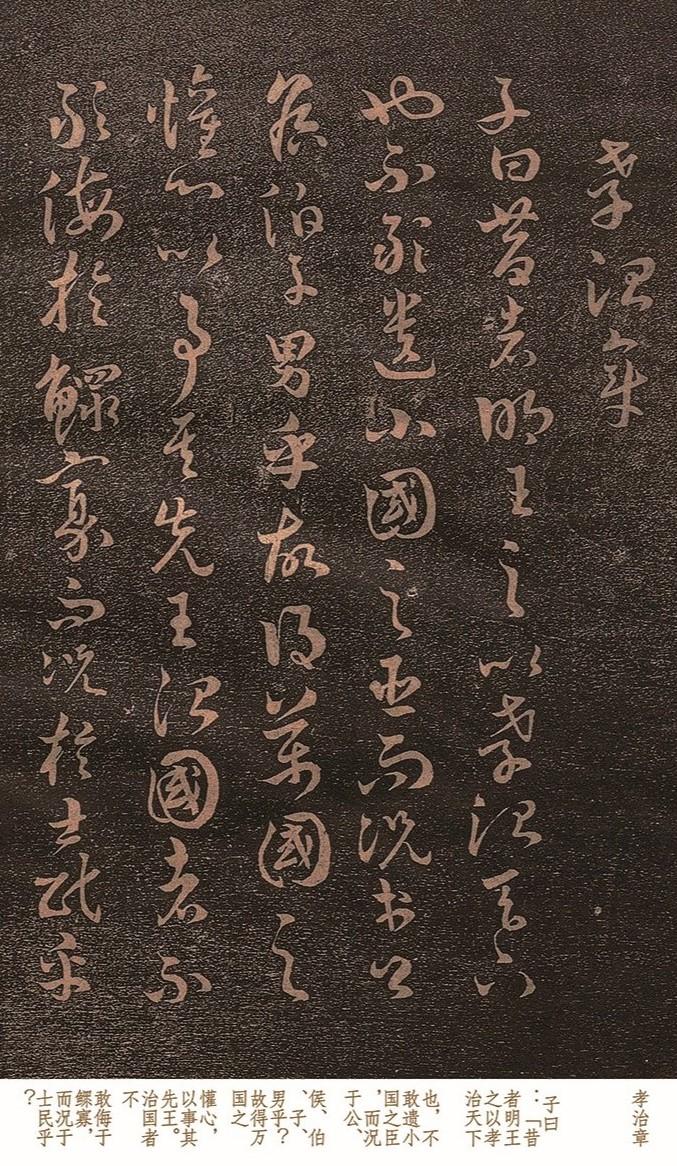 孝治章
子曰昔者明王之以孝治天下
也不敢遺小國之臣而况於公
侯伯子男乎故得萬國之
懽心以事其先王治國者不
敢侮於鰥寡而况於士民乎
孝治章
子曰
：「昔
者明王
之以孝
治天下
也，不
敢遗小
国之臣
，而况
于公、
侯、伯
、子、
男乎？
故得万
国之
懽心，
以事其
先王。
治国者
不
敢侮于
鳏寡，
而况于
士民乎
？